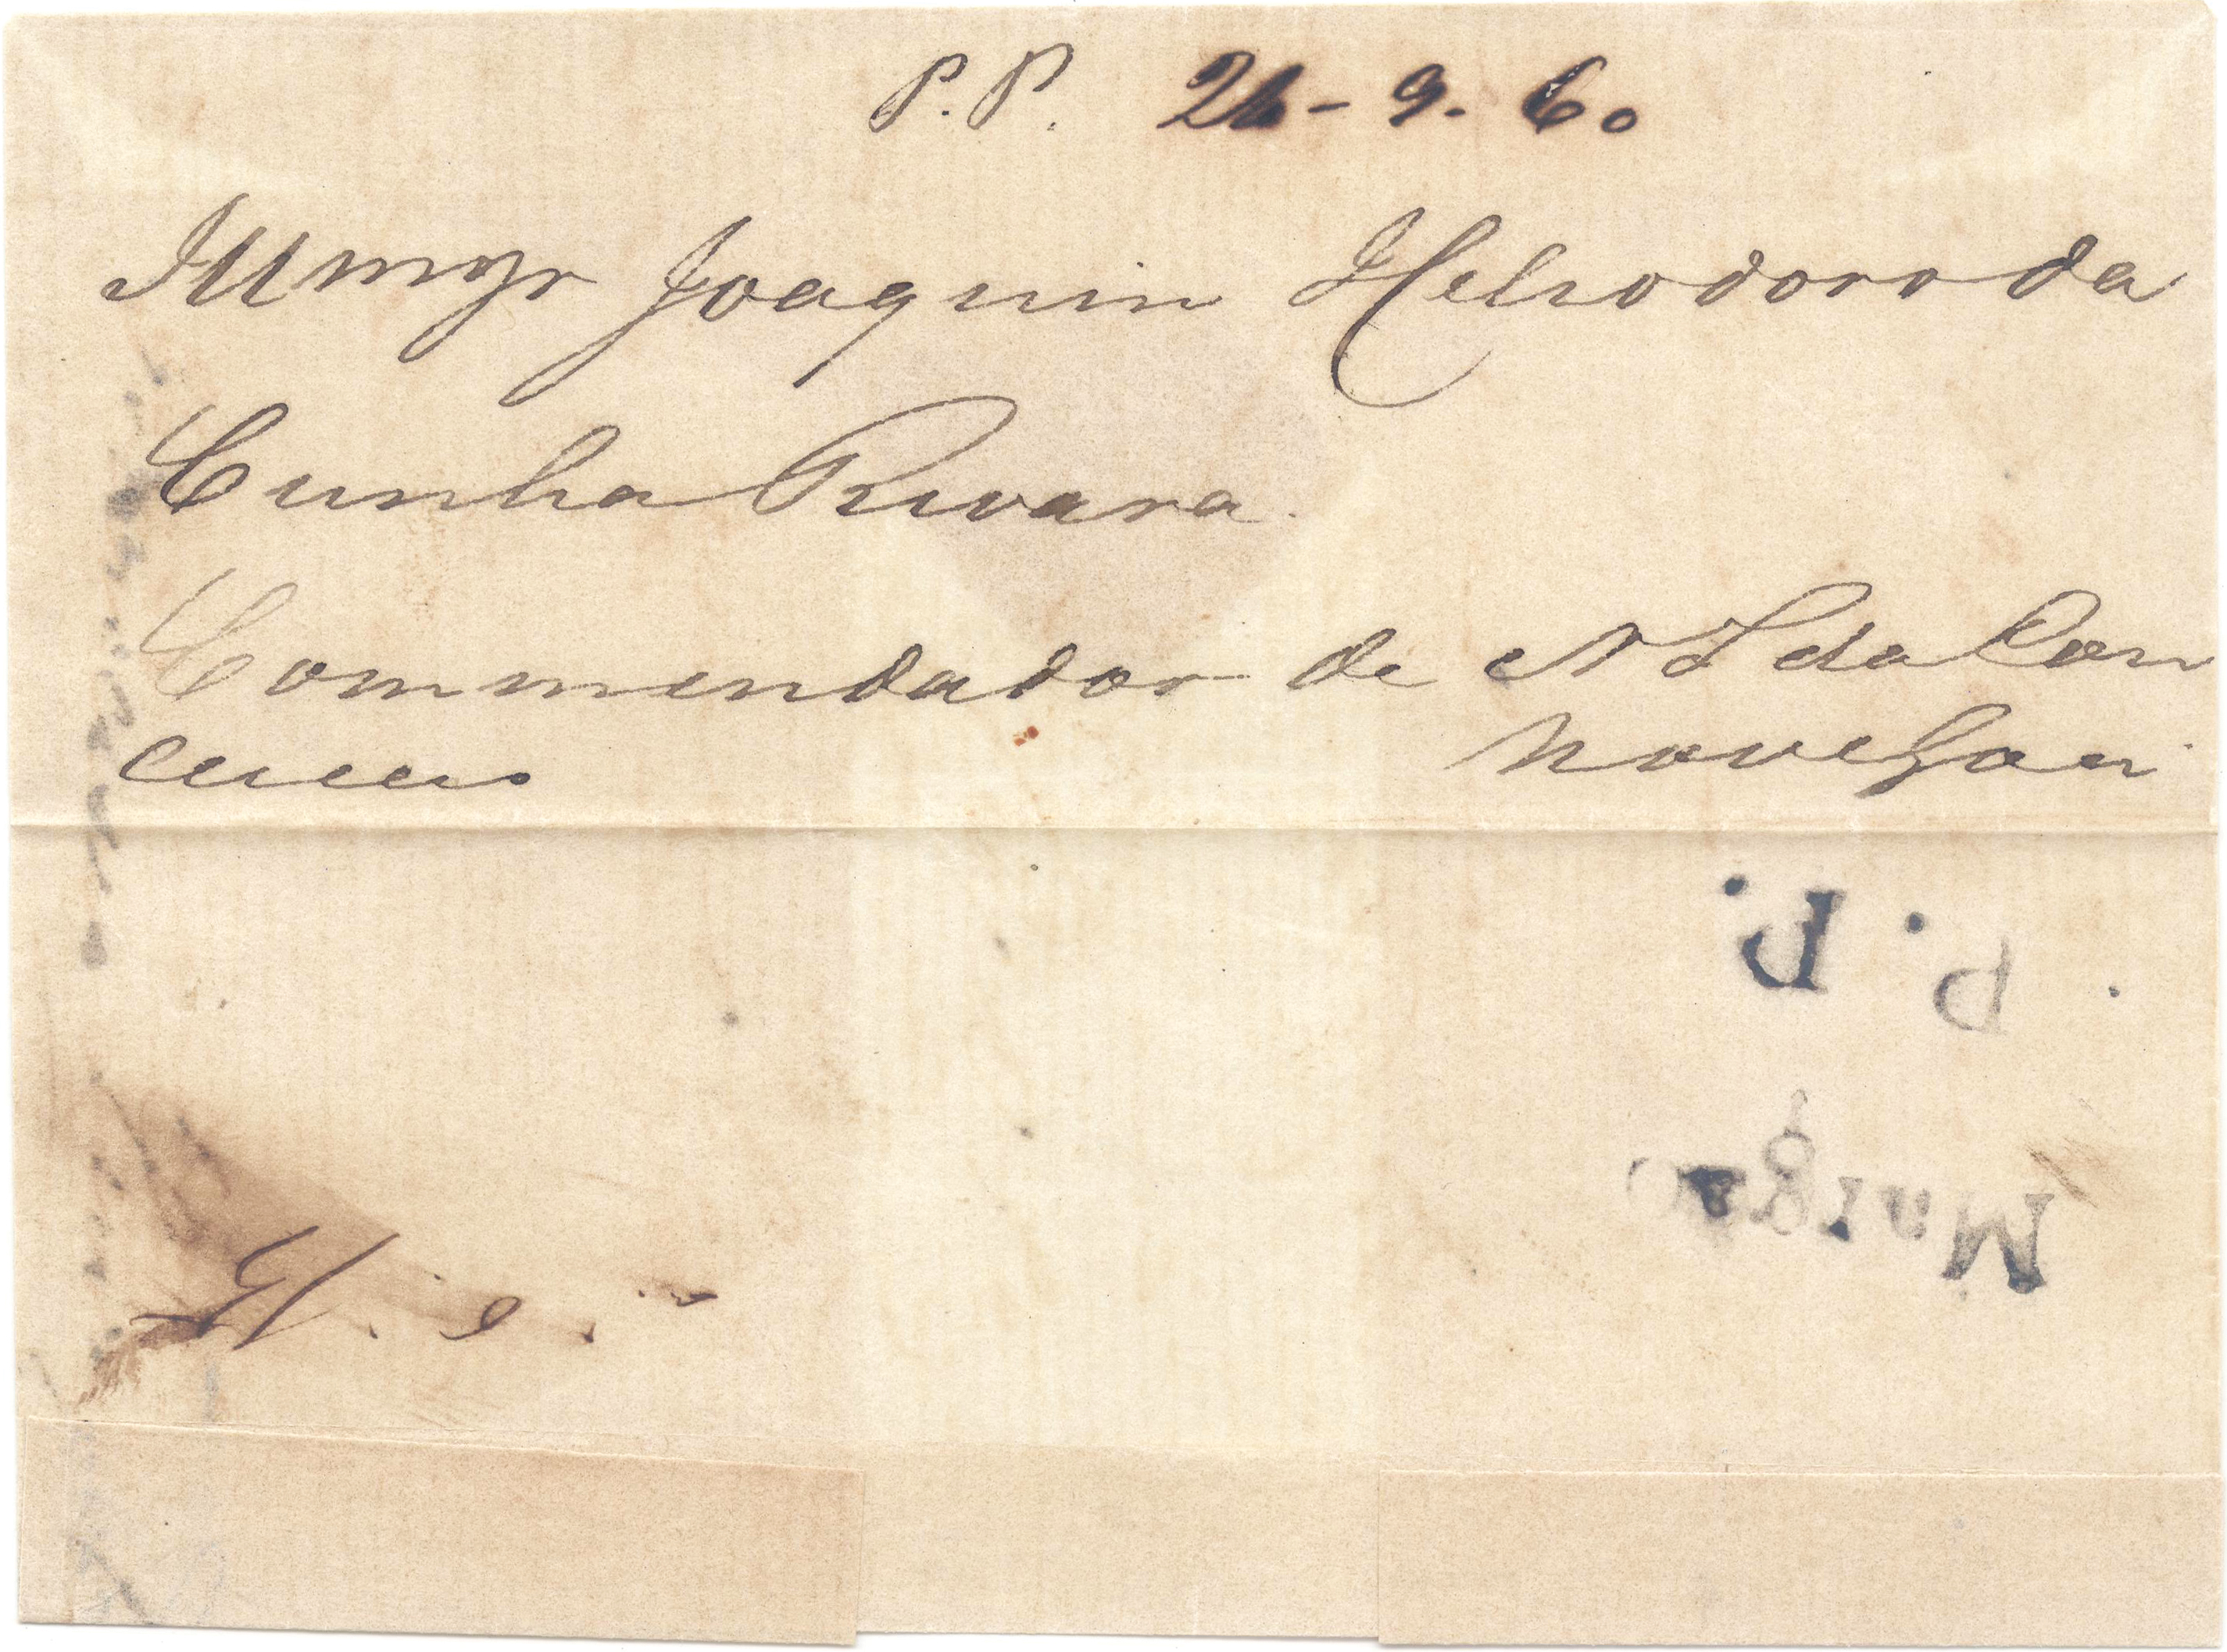 P. P. 26 - 9. 60
Illmo Sr Joaquim Heliodoro da
Cunha Rivara
Commendador de N S da Con
ceicao Nova Goa
P. P.
Margao